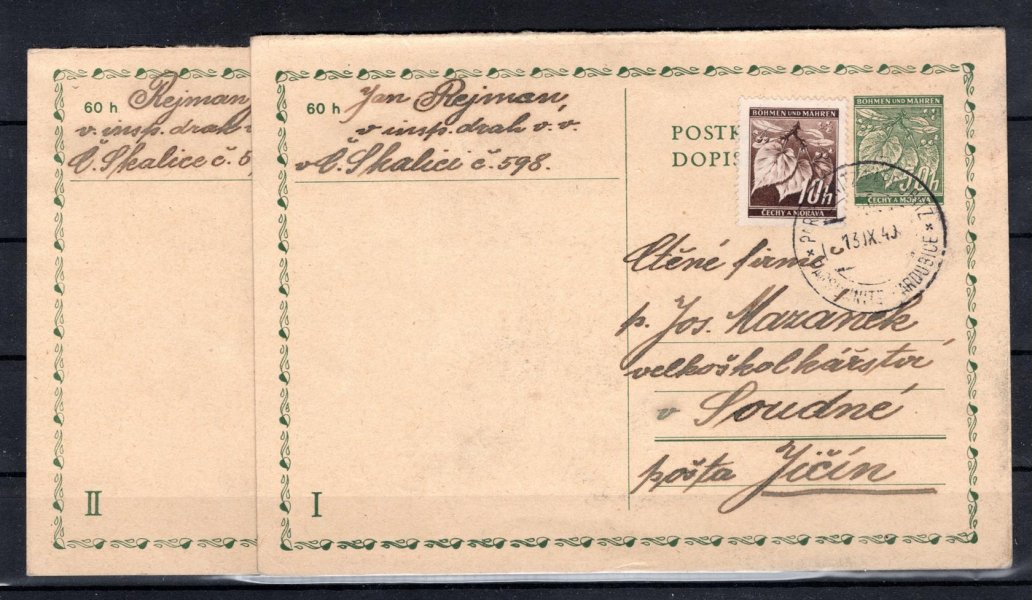 60 h
Rejman
v. insp. drah
Č. Skalice č. 5
II
60 h
Jan Rejman,
v. insp. drah v. v.
v Č. Skalici č. 598.
I
POSTK
DOPIS
BÖHMEN UND MÄHREN
10h
ČECHY A MORAVA
BÖHMEN UND MÄHREN
50h
13 IX.40
PARDUBICE
Ctěné firmě
p. Jos. Mazánek
velkoškolkářství
v Soudné
pošta Jičín